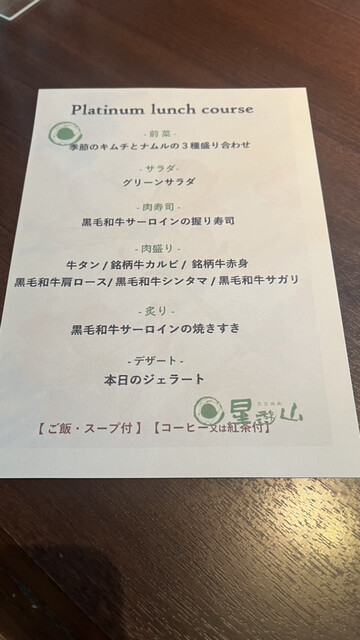 Platinum lunch course
- 前菜 -
季節のキムチとナムルの３種盛り合わせ
- サラダ -
グリーンサラダ
- 肉寿司 -
黒毛和牛サーロインの握り寿司
- 肉盛り -
牛タン / 銘柄牛カルビ / 銘柄牛赤身
黒毛和牛肩ロース / 黒毛和牛シンタマ / 黒毛和牛サガリ
- 炙り -
黒毛和牛サーロインの焼きすき
- デザート -
本日のジェラート
星遊山
【ご飯・スープ付】【コーヒー又は紅茶付】